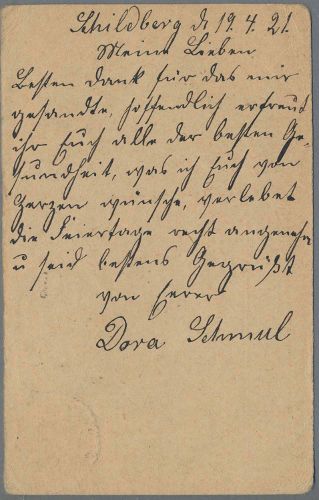 Schildberg d 19. 4. 21.
Meine Lieben
Besten Dank für das mir
gesandte, hoffendlich erfreut
ihr Euch alle der besten Ge-
sundheit, was ich Euch von
Herzen wünsche, verlebet
die Feiertage recht angenehm
u seid bestens Gegrüßt
von Eurer
Dora Schmul